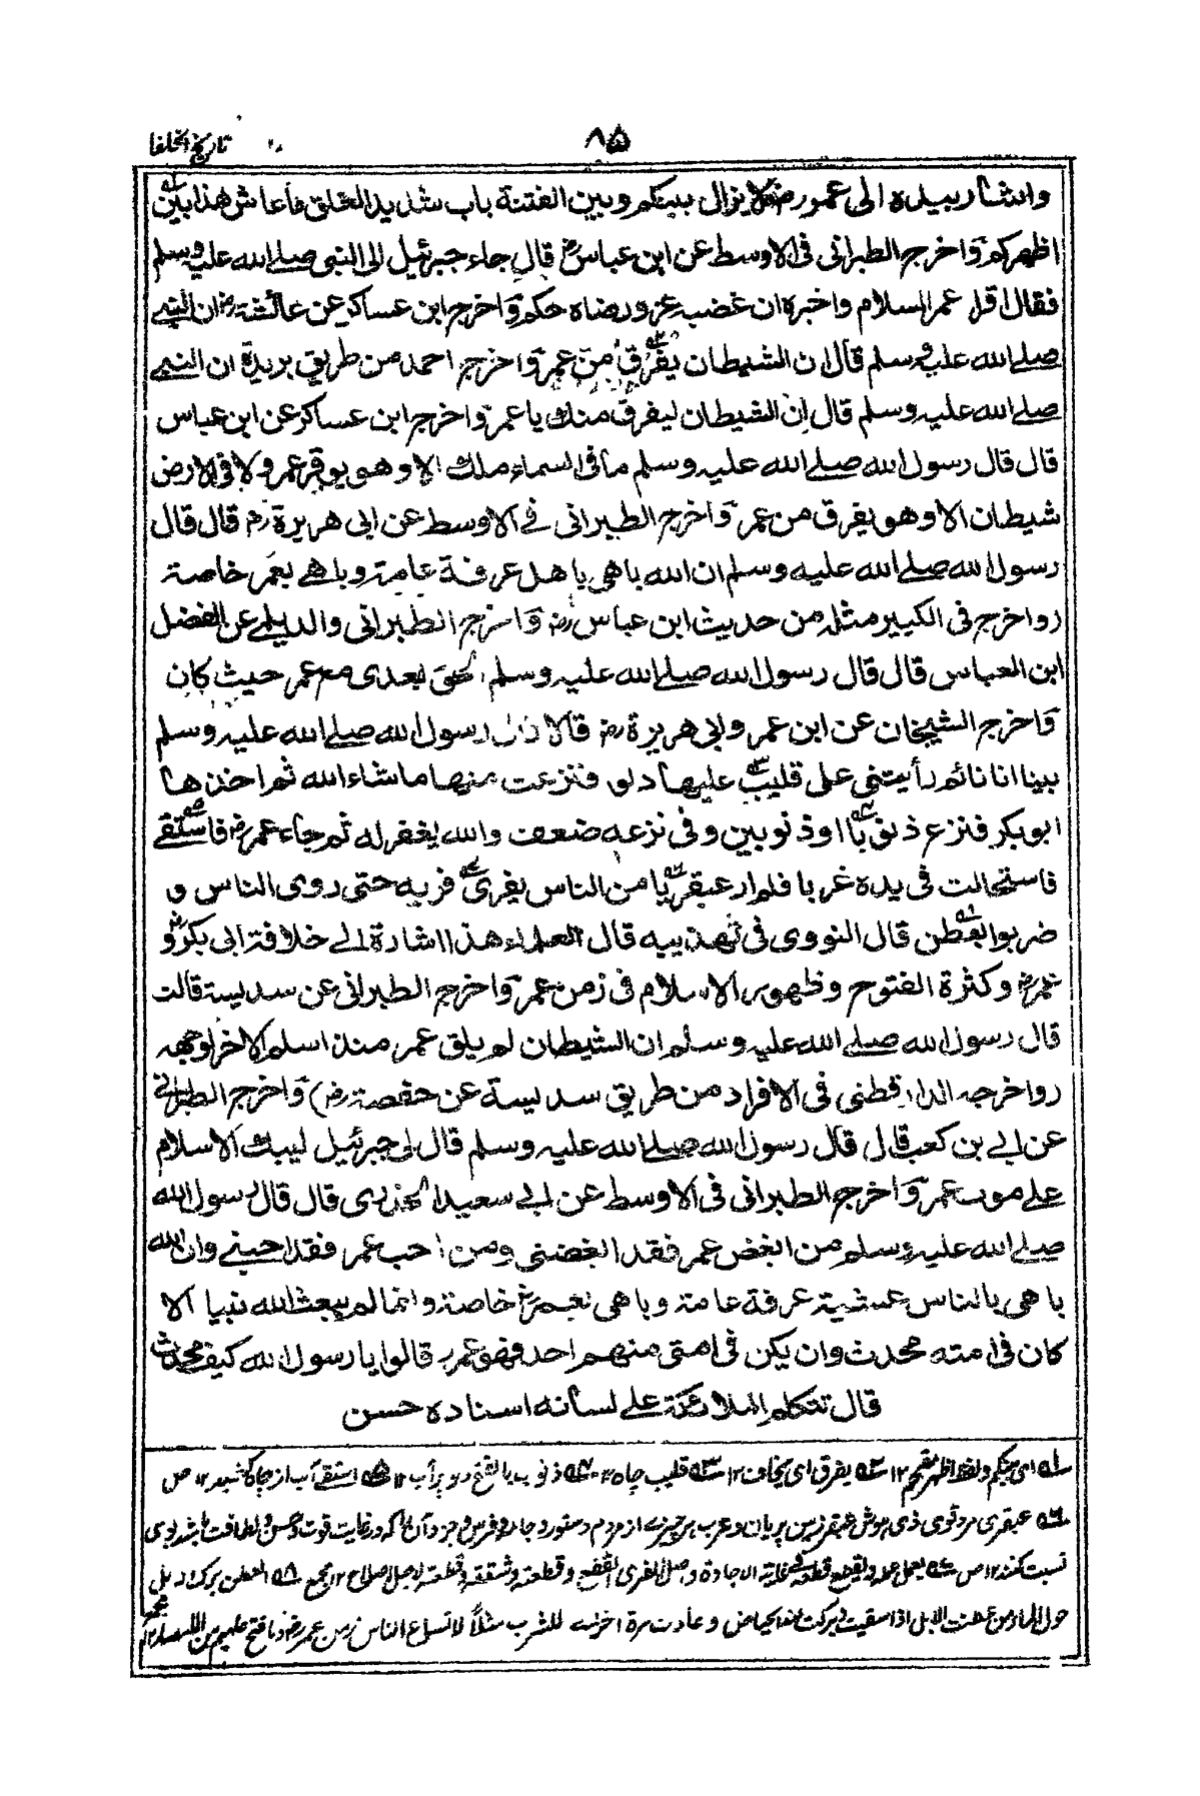 ٨٥
تاریخ الخلفا
واشار بيده الى عمر رض لا يزال بينكم وبين الفتنة باب شديد الغلق ما عاش هذا بين
اظهركم واخرج الطبرانى فى الاوسط عن ابن عباس رض قال جاء جبرئيل الى النبى صلے الله عليه وسلم
فقال اقرا عمر السلام واخبره ان غضبه عز ورضاه حكم واخرج ابن عساكر عن عائشة رض ان النبى
صلے الله عليه وسلم قال ان الشيطان يفرق من عمر واخرج احمد من طريق بريدة ان النبى
صلے الله عليه وسلم قال ان الشيطان ليفرق منك يا عمر واخرج ابن عساكر عن ابن عباس
قال قال رسول الله صلے الله عليه وسلم ما فى السماء ملك الا وهو يوقر عمر ولا فى الارض
شيطان الا وهو يفرق من عمر واخرج الطبرانى فى الاوسط عن ابى هريرة رض قال قال
رسول الله صلے الله عليه وسلم ان الله باهى باهل عرفة عامة وباهى بعمر خاصة
(واخرج فى الكبير مثله من حديث ابن عباس رض واخرج الطبرانى والديلمى عن الفضل
ابن العباس قال قال رسول الله صلے الله عليه وسلم الحق بعدى مع عمر حيث كان
واخرج الشيخان عن ابن عمر وابى هريرة رض قالا قال رسول الله صلے الله عليه وسلم
بينا انا نائم رأيتنى على قليب عليها دلو فنزعت منها ما شاء الله ثم اخذها
ابو بكر فنزع ذنوبا او ذنوبين وفى نزعه ضعف والله يغفر له ثم جاء عمر رض فاستقى
فاستحالت فى يده غربا فلم ار عبقريا من الناس يفرى فريه حتى روى الناس و
ضربوا بعطن قال النووى فى تهذيبه قال العلماء هذا اشارة الى خلافة ابى بكر و
عمر رض وكثرة الفتوح وظهور الاسلام فى زمن عمر واخرج الطبرانى عن سديسة قالت
قال رسول الله صلے الله عليه وسلم ان الشيطان لم يلق عمر منذ اسلم الا خر لوجهه
(واخرجه الدارقطنى فى الافراد من طريق سديسة عن حفصة رض) واخرج الطبرانى
عن ابى بن كعب قال قال رسول الله صلے الله عليه وسلم قال لى جبرئيل ليبك الاسلام
على موت عمر واخرج الطبرانى فى الاوسط عن ابى سعيد الخدرى قال قال رسول الله
صلے الله عليه وسلم من ابغض عمر فقد ابغضنى ومن احب عمر فقد احبنى وان الله
باهى بالناس عشية عرفة عامة وباهى بعمر رض خاصة وانما لم يبعث الله نبيا الا
كان فى امته محدث وان يكن فى امتى منهم احد فهو عمر قالوا يا رسول الله كيف محدث
قال تتكلم الملائكة على لسانه اسناده حسن
ای بینکم ولفظ اظهر مقحم ١٢ یفرق ای یخاف ١٢ قلیب چاه ١٢ ذنوب بالفتح دلو پر آب ١٢ استقے آب از چاه کشید ١٢ ص
عبقری مرد قوی ذی هوش عبقر زمین پریان وعرب هر چیزے از مردم وستور وجامه وفرش وجز آن را که در غایت قوت وحسن ولطافت باشد بوی
نسبت کنند ١٢ ص یعمل عمله ویقطع قطعه فی غایة الاجادة واصل الفری القطع وقطعته وشققته وقطعته لاجل اصلاح ١٢ مجمع العطن مبرک ابل
حول الماء من عطنت الابل اذا سقيت وبركت عند الحياض وعادت مرة اخرى للشرب مثلا لاتساع الناس زمن عمر رض وما فتح عليهم من